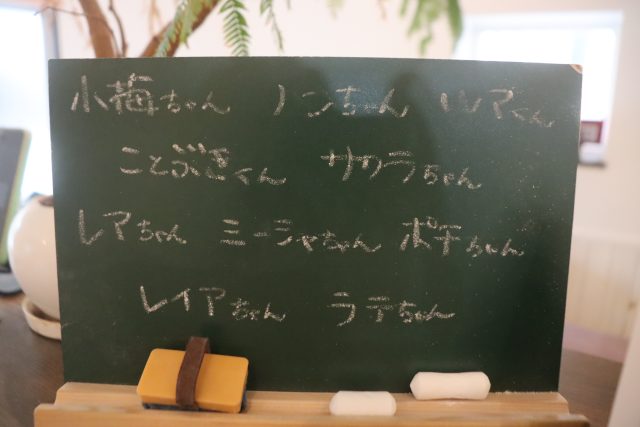 小梅ちゃん ノンちゃん ルマくん
ことぶきくん サクラちゃん
レアちゃん ミーシャちゃん ポチちゃん
レイアちゃん ラテちゃん